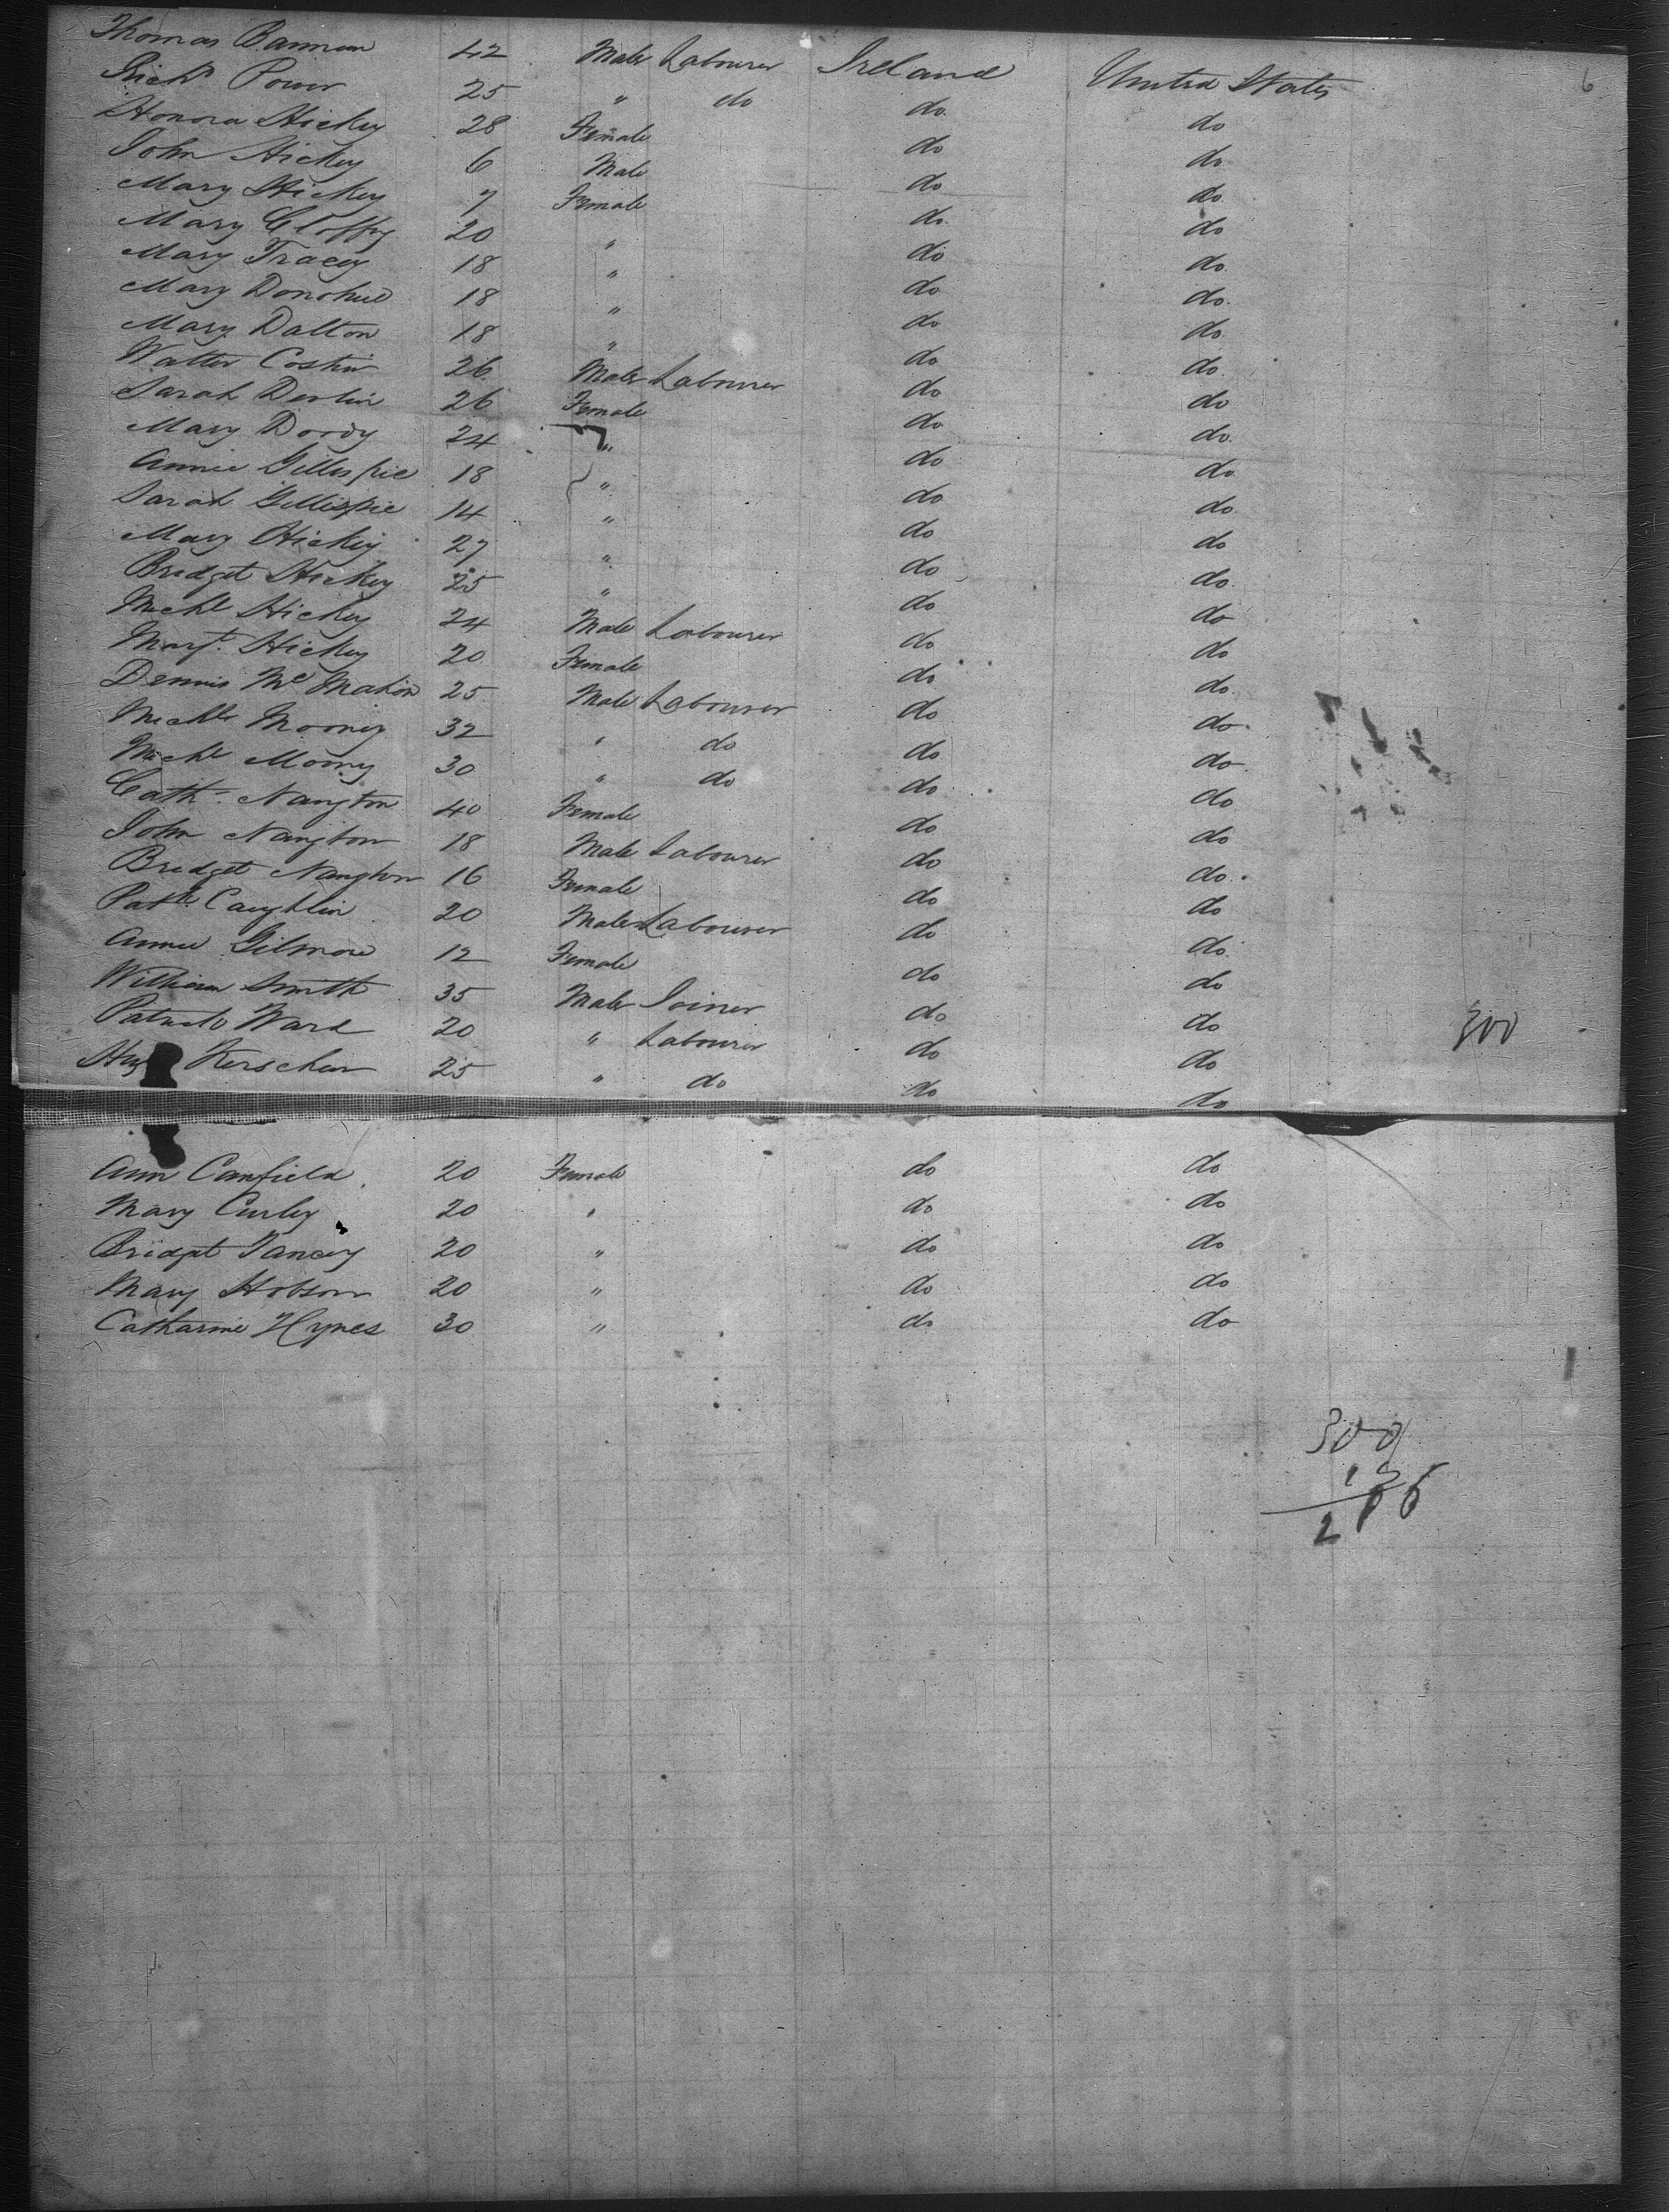 6
Thomas Bannon 42 Male Labourer Ireland United States
Richd Power 25 " do do do
Honora Hickey 28 Female do do
John Hickey 6 Male do do
Mary Hickey 7 Female do do
Mary Cloffy 20 " do do
Mary Tracey 18 " do do
Mary Donohue 18 " do do
Mary Dalton 18 " do do
Walter Costin 26 Male Labourer do do
Sarah Devlin 26 Female do do
Mary Doody 24 " do do
Annie Gillespie 18 " do do
Sarah Gillespie 14 " do do
Mary Hickey 27 " do do
Bridget Hickey 25 " do do
Michl Hickey 24 Male Labourer do do
Margt. Hickey 20 Female do do
Dennis McMahon 25 Male Labourer do do
Michl Mooney 32 " do do do
Michl Moony 30 " do do do
Cath. Nangton 40 Female do do
John Nangton 18 Male Labourer do do
Bridget Nangton 16 Female do do
Patk Caughlin 20 Male Labourer do do
Annie Gilmore 12 Female do do
William Smith 35 Male Joiner do do
Patrick Ward 20 " Labourer do do 300
Kerschen 25 " do do do
Ann Canfield 20 Female do do
Mary Curley 20 " do do
Bridget Tancey 20 " do do
Mary Hobson 20 " do do
Catharine Hynes 30 " do do
300